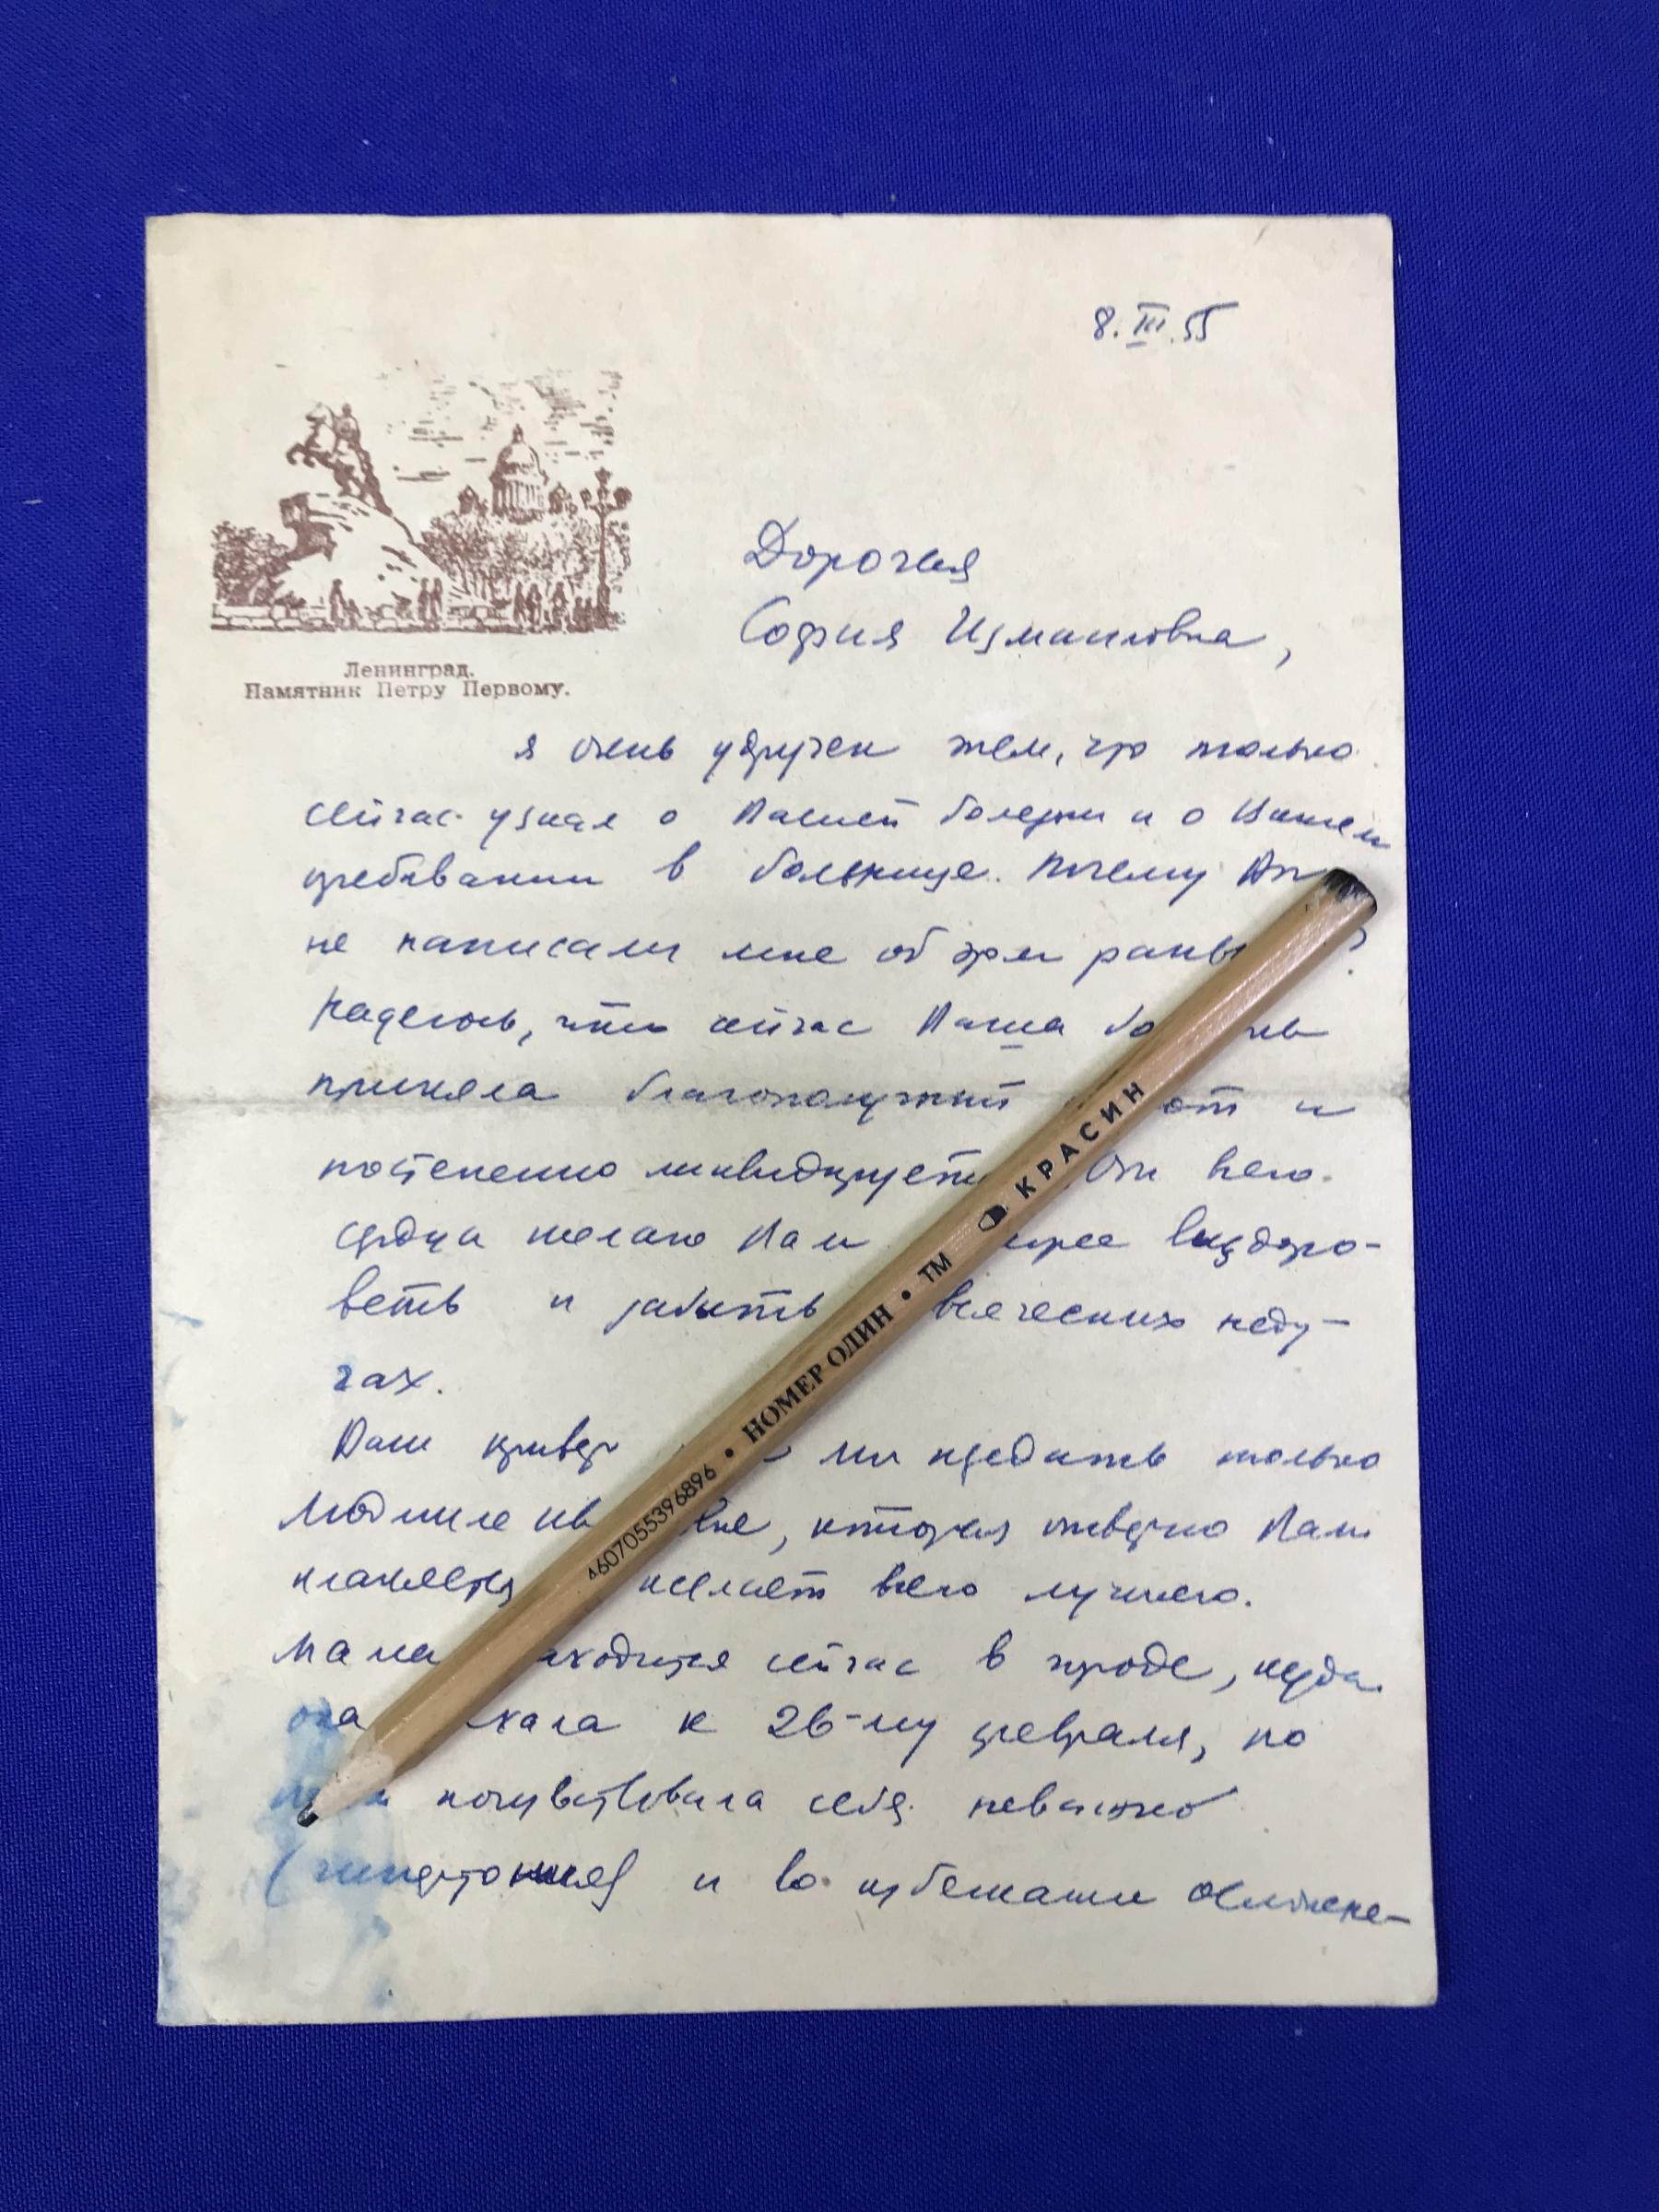 8.III.55
Ленинград.
Памятник Петру Первому.
Дорогая
София Измаиловна,
я очень удручен тем, что только
сейчас узнал о Вашей болезни и о Вашем
пребывании в больнице. Почему Вы
не написали мне об этом рань ?
Надеюсь, что сейчас Ваша бо нь
приняла благополучный от и
постепенно ликвидирует От всего
сердца желаю Вам рее выздоро-
веть и забыть всяческих неду-
гах.
Ваш привет мы передать только
Людмиле Ив вне, которая ответно Вам
кланяется желает всего лучшего.
Мама аходится сейчас в городе, куда
она хала к 26-му февраля, но
почувствовала себя неважно
(гипертония) и во избежании осложне-
КРАСИН
ТМ • НОМЕР ОДИН • 4607055396896